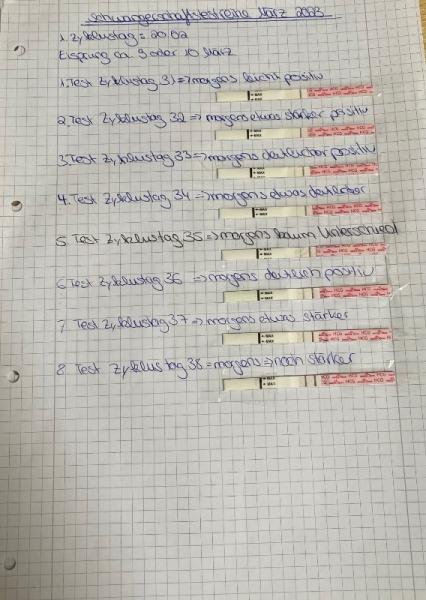 Schwangerschaftstestreihe März 2023
1. Zyklustag = 20.02
Eisprung ca 9 oder 10 März
1. Test Zyklustag 31 => morgens leicht positiv
MAX
MAX
HCG
2. Test Zyklustag 32 => morgens etwas stärker positiv
MAX
MAX
HCG
3. Test Zyklustag 33 => morgens deutlicher positiv
MAX
MAX
HCG
4. Test Zyklustag 34 => morgens etwas deutlicher
MAX
MAX
HCG
5. Test Zyklustag 35 => morgens kaum Unterschied
MAX
MAX
HCG
6. Test Zyklustag 36 => morgens deutlich positiv
MAX
MAX
HCG
7. Test Zyklustag 37 => morgens etwas stärker
MAX
MAX
HCG
8. Test Zyklustag 38 => morgens => noch stärker
MAX
MAX
HCG